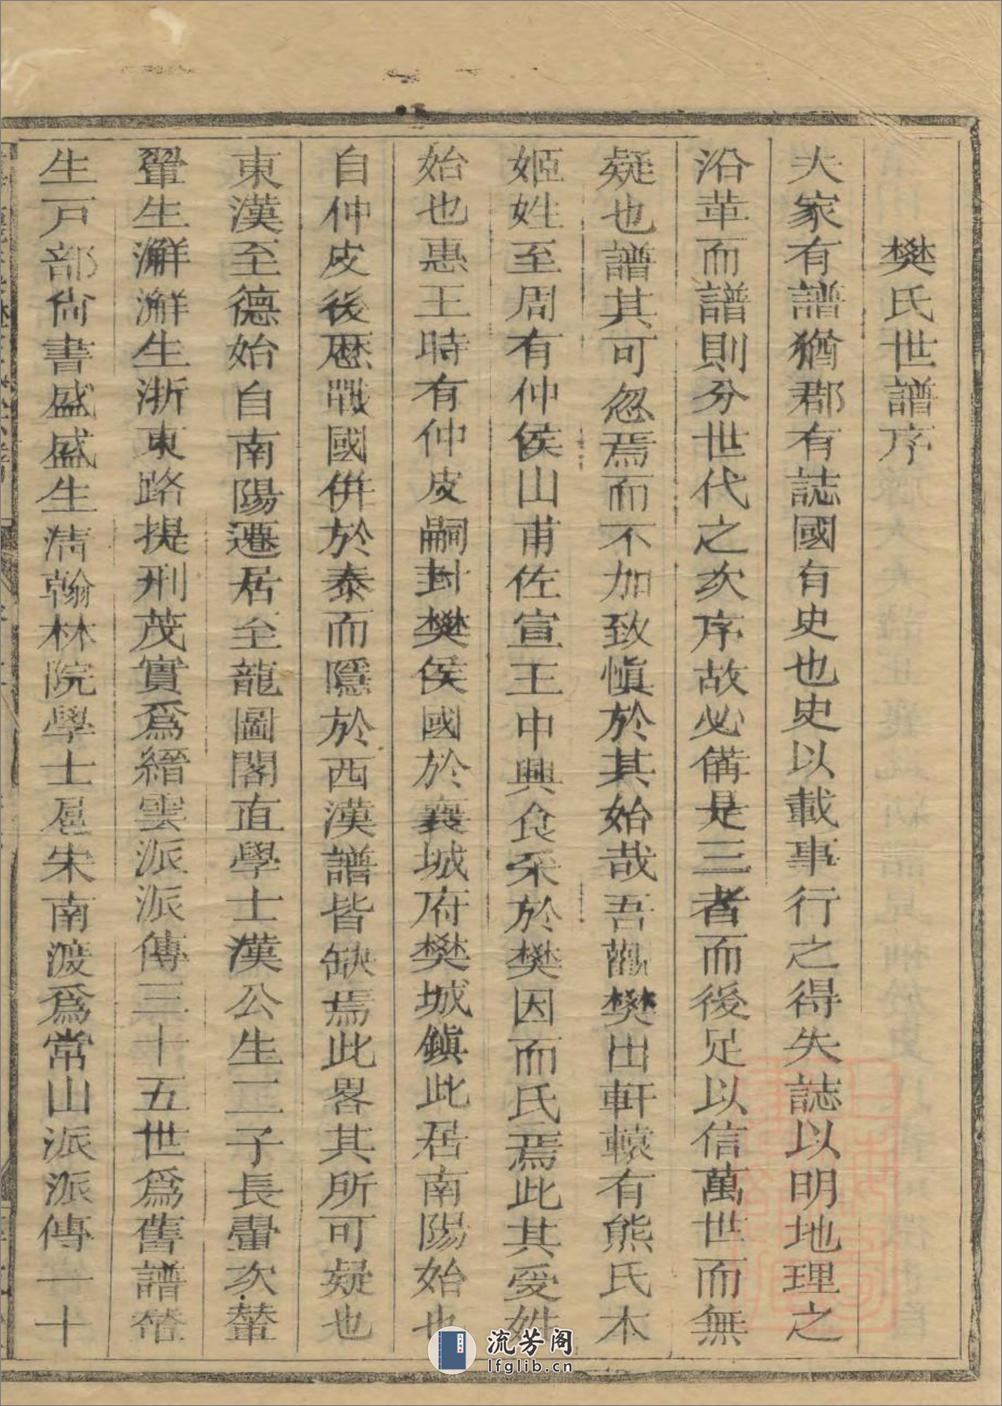 樊氏世譜序
夫家有譜猶郡有誌國有史也史以載事行之得失誌以明地理之
沿革而譜則分世代之次序故必備是三者而後足以信萬世而無
疑也譜其可忽焉而不加致慎於其始哉吾觀樊出軒轅有熊氏本
姬姓至周有仲侯山甫佐宣王中興食采於樊因而氏焉此其受姓
始也惠王時有仲皮嗣封樊侯國於襄城府樊城鎮此居南陽始也
自仲皮後歷戰國併於泰而隱於西漢譜皆缺焉此畧其所可疑也
東漢至德始自南陽遷居至龍圖閣直學士漢公生二子長 次輦
翬生澥澥生浙東路提刑茂實爲縉雲派派傳三十五世爲舊譜
生戸部尙書盛盛生清翰林院學士扈宋南渡爲常山派派傳一十
流芳阁
lfglib.cn